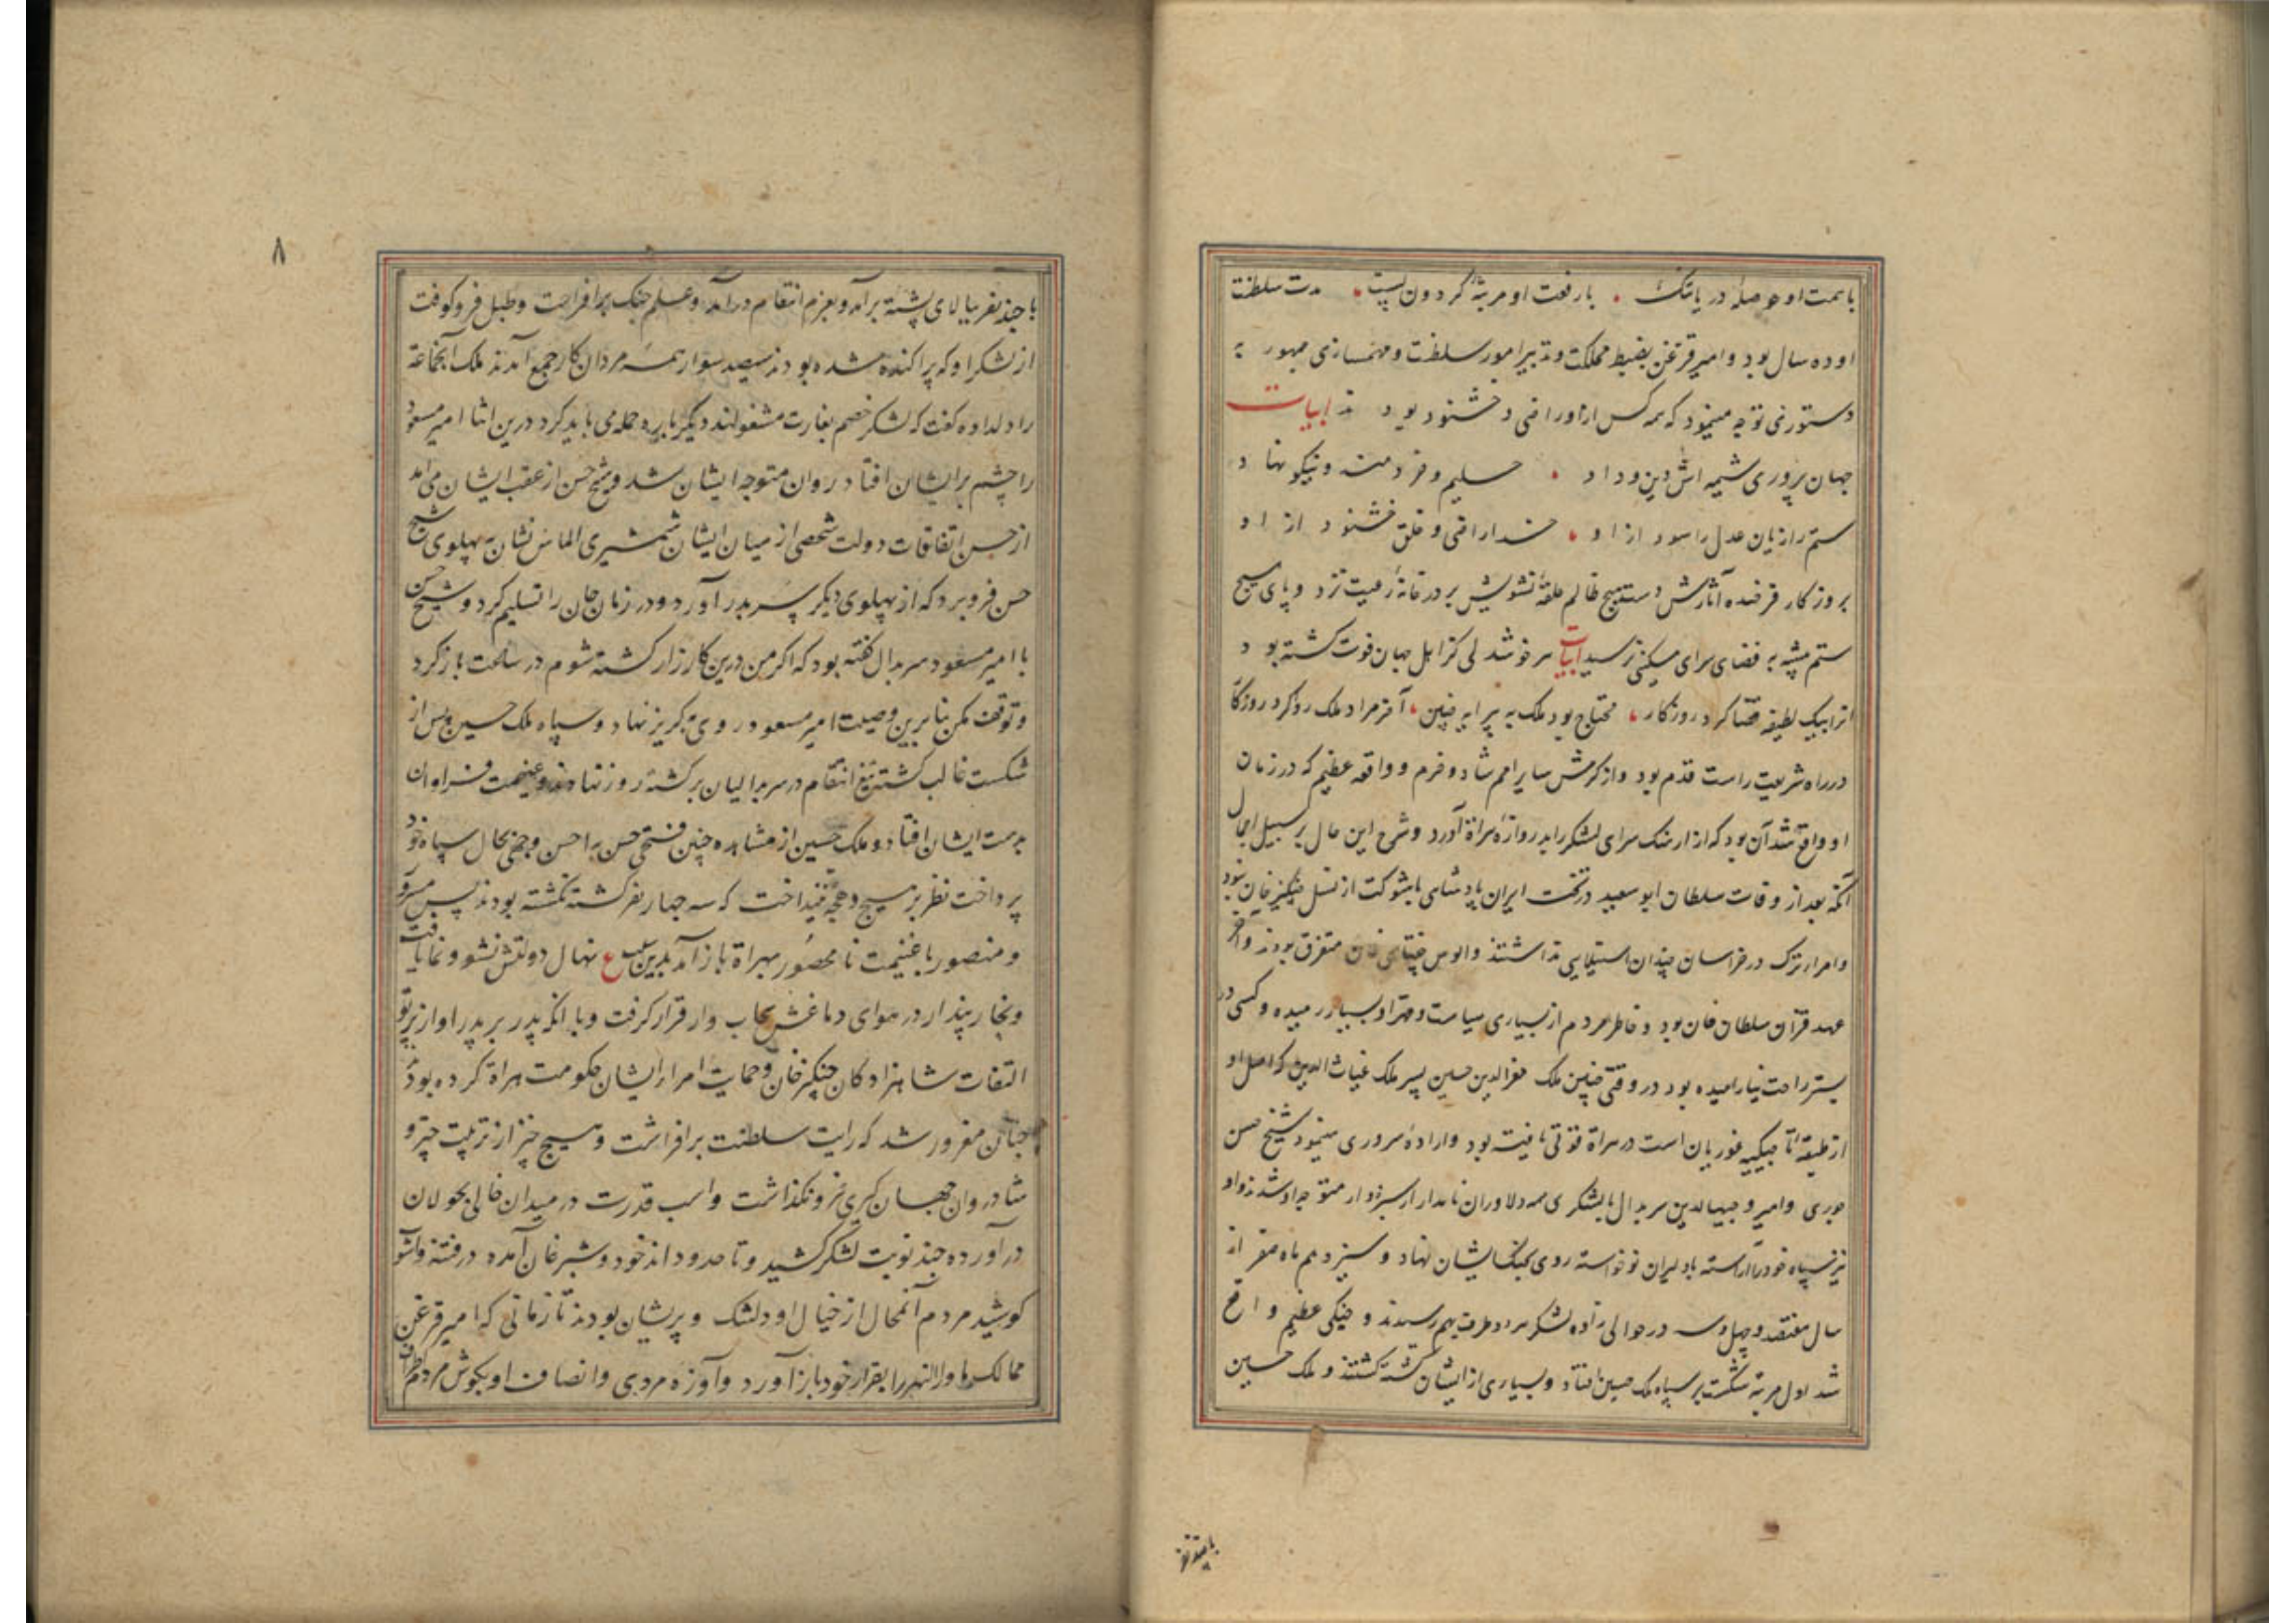 با همت او حوصله دریا تنک بارفعت او مرتبهٔ کردون پست مدت سلطنت
او ده سال بود و امیر قزغن بضبط مملکت و تدبیر امور سلطنت و مهمسازی جمهور به
دستوری توجه مینمود که همه کس ازو راضی و خشنود بودند ابیات
جهان پروری شیمه اش دین و داد سلیم و خردمند و نیکو نهاد
ستم را زیان عدل را سود ازاو خدا راضی و خلق خشنود ازاو
بروزکار فرخنده آثارش دست هیچ ظالم حلقهٔ تشویش بر در خانهٔ رعیت نزد و پای هیچ
ستم پیشه به فضای سرای مسکینی نرسید ابیات سر خوشدلی کز اهل جهان فوت کشته بود
انرا بیک لطیفه قضا کرد روزکار محتاج بود ملک به پیرایه چنین آخر مراد ملک روا کرد روزکا
در راه شریعت راست قدم بود و از کرمش سایر امم شاد و خرم و واقعه عظیم که در زمان
او واقع شد آن بود که از ارهنک سرای لشکر را بدروازهٔ هراة آورد و شرح این حال بر سبیل اجمال
آنکه بعد از وفات سلطان ابو سعید در تخت ایران پادشاهی باشوکت از نسل چنکیز خان نبود
و امراء ترک در خراسان چندان استیلایی نداشتند و الوس جغتای خان متفرق بودند و آخر
عهد قزان سلطان خان بود و خاطر مردم از بسیاری سیاست و قهر او بسیار رمیده و کسی در
بستر راحت نیارامیده بود در وقتی چنین ملک معزالدین حسین پسر ملک غیاث الدین که اصل او
از طبقهٔ غوریان است در هراة قوتی یافته بود و ارادهٔ سروری مینمود شیخ حسن
جوری و امیر وجیهالدین سربدال با لشکری همه دلاوران نامدار از سبزوار متوجه او شدند و او
نیز سپاه خود را آراسته با دلیران نوخواسته روی بجنک ایشان نهاد و سیزدهم ماه صفر از
سال هفتصد و چهل و سه در حوالی زاوه لشکر هر دو طرف بهم رسیدند و جنکی عظیم واقع
شد اول مرتبه شکست بر سپاه ملک حسین افتاد و بسیاری از ایشان کشته کشتند و ملک حسین
با چند نفر
۸
با چند نفر ببالای پشته برآمد و بعزم انتقام درآمد و علم جنک برافراخت و طبل فروکوفت
از لشکر او که پراکنده شده بودند سیصد سوار همه مردان کار جمع آمدند ملک آنجماعة
را دلداده کفت که لشکر خصم بغارت مشغولند دیکر باره حمله می باید کرد درین اثنا امیر مسعود
را چشم بر ایشان افتاد روان متوجه ایشان شد و شیخ حسن از عقب ایشان می آمد
از حسن اتفاقات دولت شخصی از میان ایشان شمشیری الماس نشان به پهلوی شیخ
حسن فرو برد که از پهلوی دیکر سر بدر آورد و در زمان جان را تسلیم کرد و شیخ حسن
با امیر مسعود سربدال کفته بود که اکر من درین کارزار کشته شوم در ساعت بازکرد
و توقف مکن بنابرین وصیت امیر مسعود روی به کریز نهاد و سپاه ملک حسین پس از
شکست غالب کشته تیغ انتقام در سربدالیان برکشته روز نهادند و غنیمت فراوان
بدست ایشان افتاد و ملک حسین از مشاهده چنین فتحی حسن به احسن وجهی بحال سپاه خود
پرداخت نظر بر هیچ نینداخت که سه چهار نفر کشته نکشته بودند پس مسرور
و منصور با غنیمت نامحصور بهراة باز آمد بدین سبب ع نهال دولتش نشو و نما یافت
و بخار پندار در هوای دماغش سحاب وار قرار کرفت و با انکه پدر بر پدر او از پرتو
التفات شاهزادکان چنکیز خان و حمایت امراء ایشان حکومت هراة کرده بودند
چنان مغرور شد که رایت سلطنت برافراشت و هیچ چیز از ترتیب چتر و
شادروان جهان کیری فرو نکذاشت و اسب قدرت در میدان خالی بجولان
درآورده چند نوبت لشکر کشید و تا حدود اندخود و شبرغان آمده در فتنه و آشوب
کوشید مردم آنمحال از خیال او دلتنک و پریشان بودند تا زمانی که امیر قزغن
ممالک ماوراالنهر را بقرار خود باز آورد و آوازه مردی و انصاف او بکوش مردم اطراف